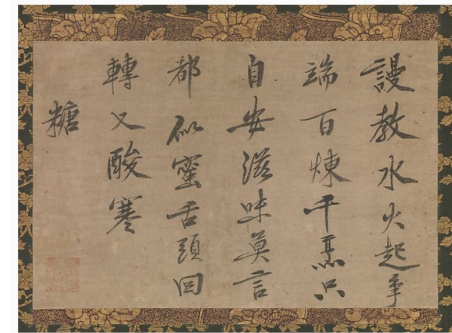 謾教水火起爭
端百煉千熏只
自安滋味莫言
都似蜜舌頭回
轉又酸寒
糖